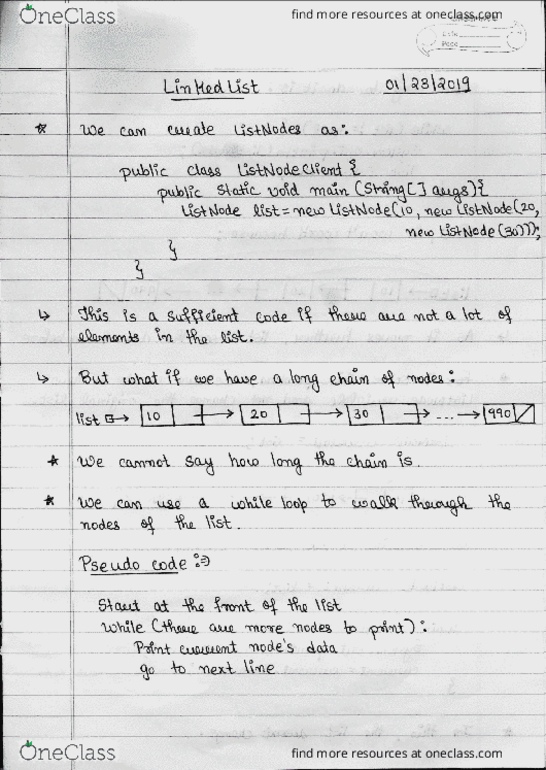 OneClass
find more resources at oneclass.com
Date
Page
Linked List 01/23/2019
* We can create ListNodes as:
public class ListNodeClient {
public static void main (String[] args) {
ListNode list = new ListNode(10, new ListNode(20,
new ListNode(30)));
}
}
↳ This is a sufficient code if there are not a lot of
elements in the list.
↳ But what if we have a long chain of nodes:
list → 10 → 20 → 30 → ... → 990
* We cannot say how long the chain is.
* We can use a while loop to walk through the
nodes of the list.
Pseudo code :⇒
Start at the front of the list
while (there are more nodes to print):
Print current node's data
go to next line
OneClass
find more resources at oneclass.com